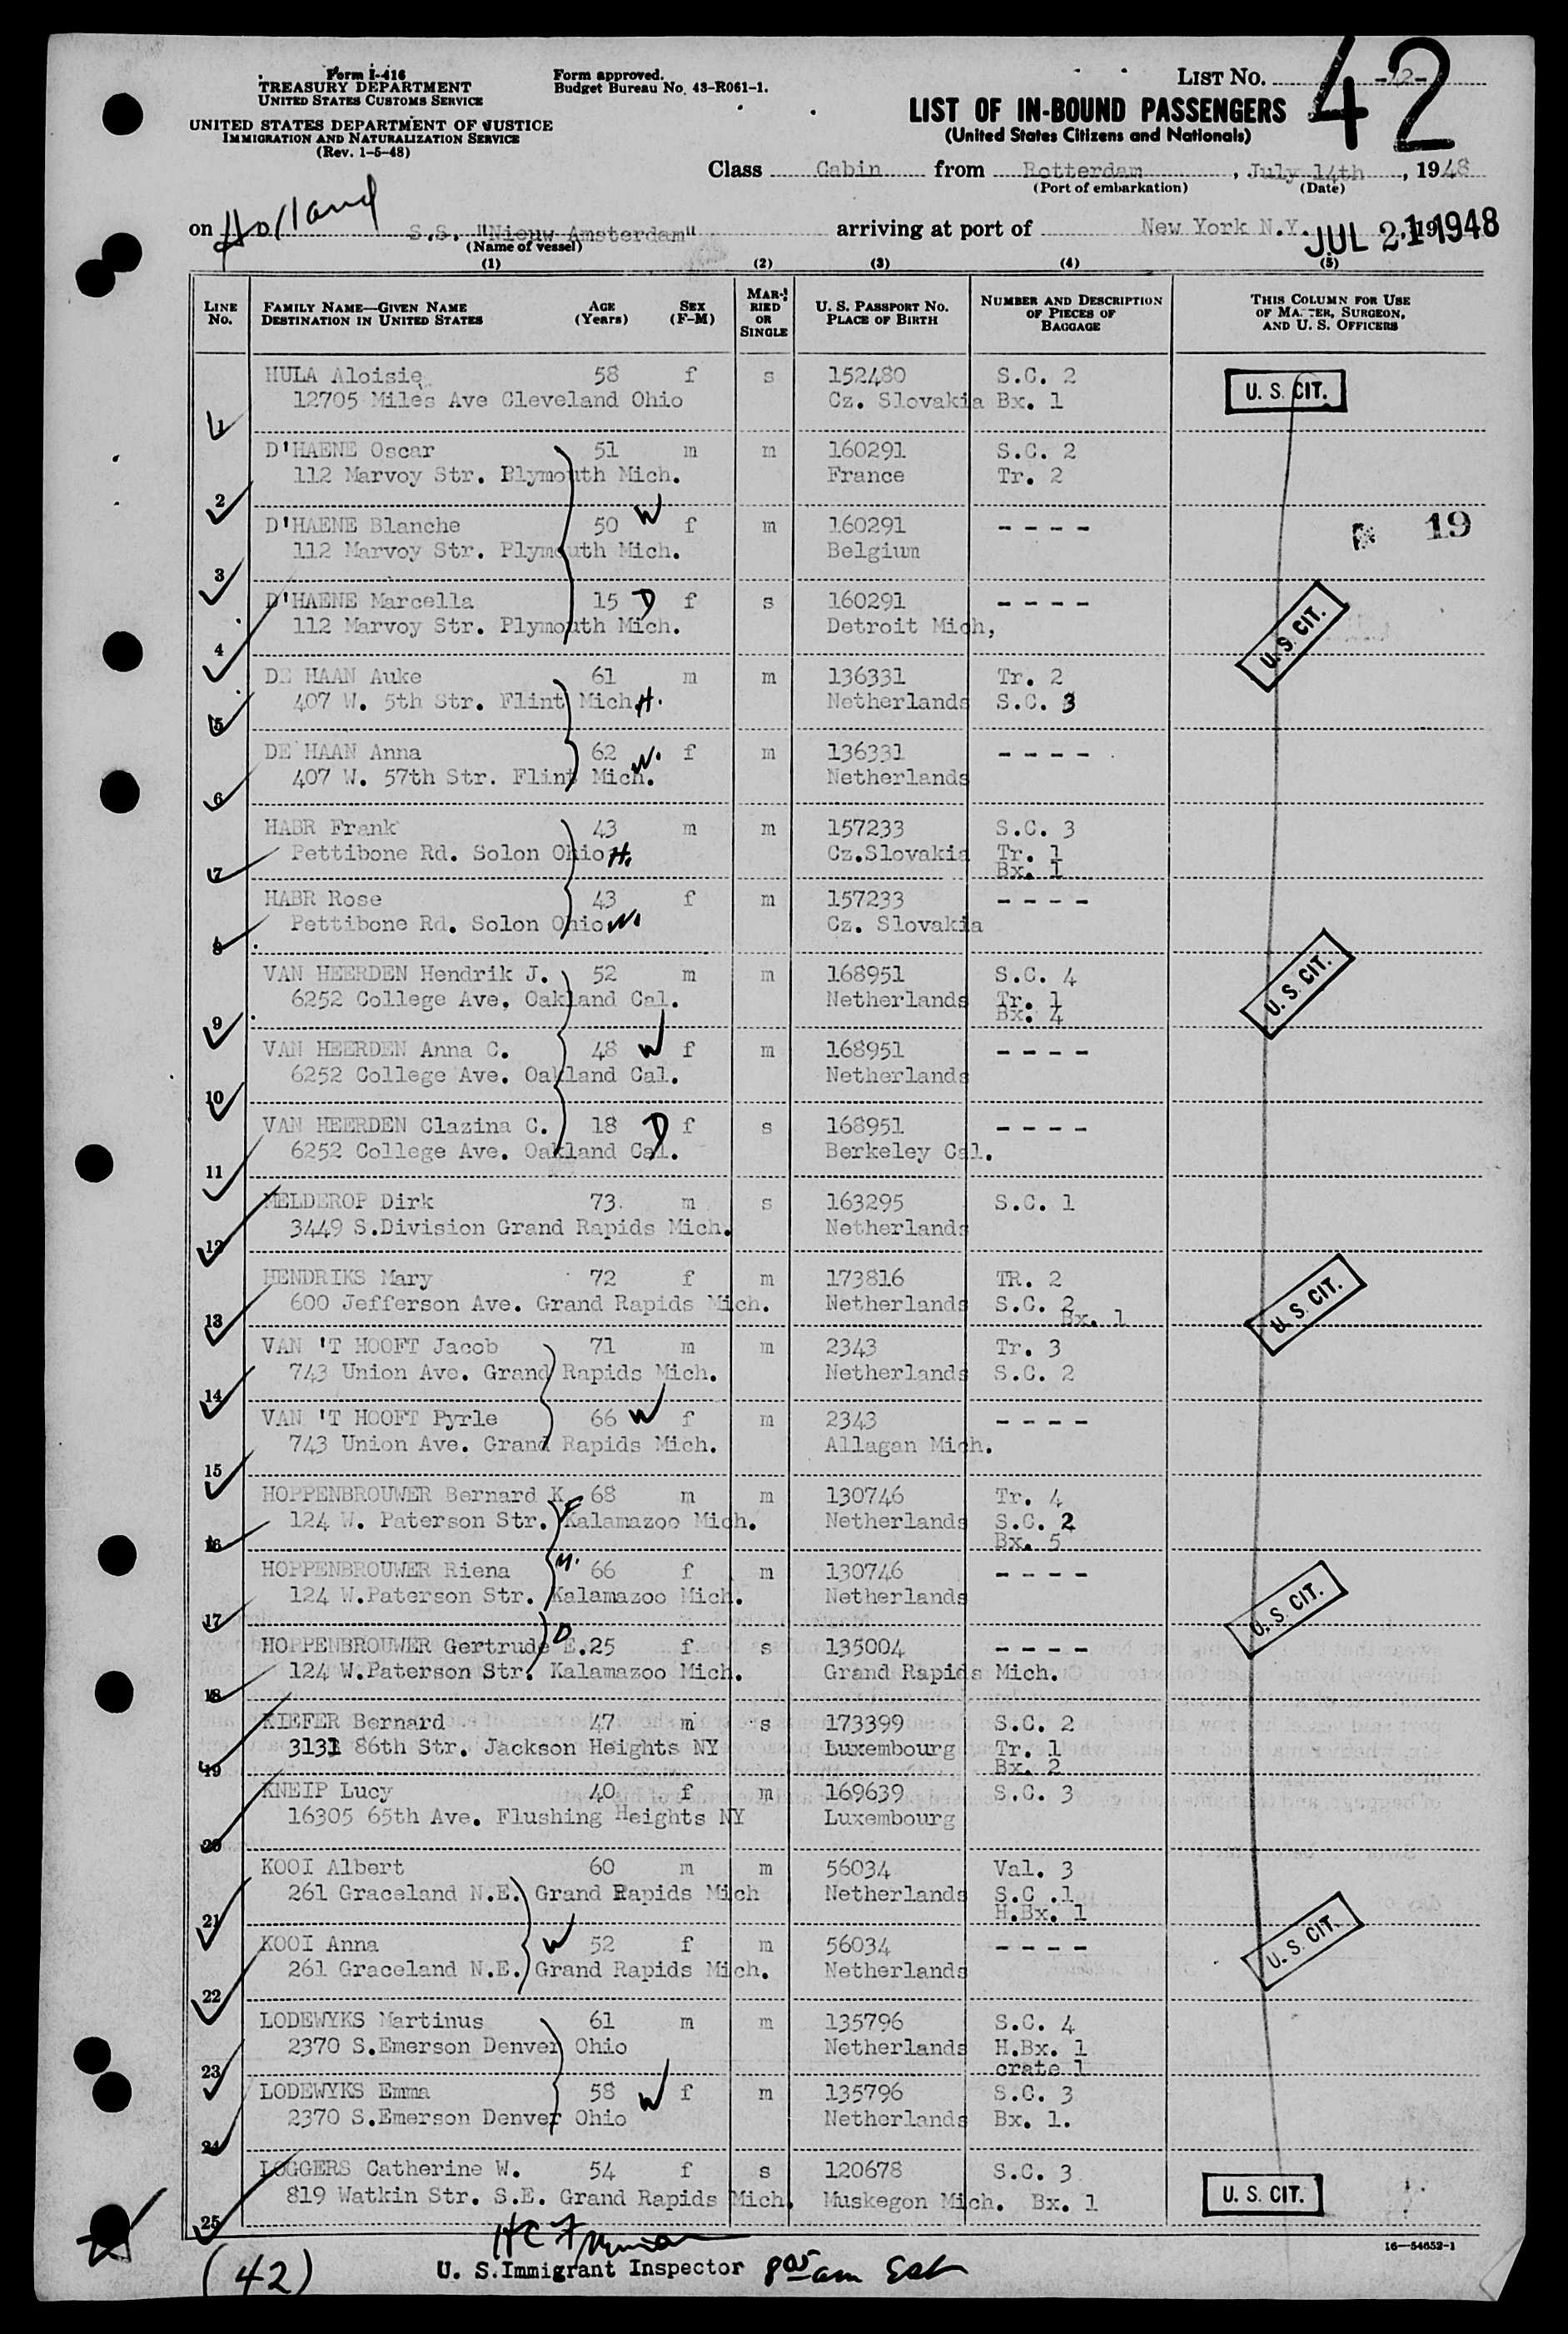 Form I-416
TREASURY DEPARTMENT
UNITED STATES CUSTOMS SERVICE
UNITED STATES DEPARTMENT OF JUSTICE
IMMIGRATION AND NATURALIZATION SERVICE
(Rev. 1-5-48)
Form approved.
Budget Bureau No. 43-R061-1.
LIST NO. -42-
42
LIST OF IN-BOUND PASSENGERS
(United States Citizens and Nationals)
Class Cabin from Rotterdam, July 14th, 1948
(Port of embarkation) (Date)
on Holland S.S. "Nieuw Amsterdam" arriving at port of New York N.Y. , 19
JUL 21 1948
(Name of vessel)
(1) (2) (3) (4) (5)
LINE No. FAMILY NAME—GIVEN NAME DESTINATION IN UNITED STATES AGE (Years) SEX (F-M) MARRIED OR SINGLE U. S. PASSPORT NO. PLACE OF BIRTH NUMBER AND DESCRIPTION OF PIECES OF BAGGAGE THIS COLUMN FOR USE OF MASTER, SURGEON, AND U. S. OFFICERS
HULA Aloisie 58 f s 152480 S.C. 2 U. S. CIT.
1 12705 Miles Ave Cleveland Ohio Cz. Slovakia Bx. 1
D'HAENE Oscar 51 m m 160291 S.C. 2
2 112 Marvoy Str. Plymouth Mich. France Tr. 2
D'HAENE Blanche 50 W f m 160291 - - - - 19
3 112 Marvoy Str. Plymouth Mich. Belgium
D'HAENE Marcella 15 D f s 160291 - - - - U. S. CIT.
4 112 Marvoy Str. Plymouth Mich. Detroit Mich,
DE HAAN Auke 61 m m 136331 Tr. 2
5 407 W. 5th Str. Flint Mich H. Netherlands S.C. 3
DE HAAN Anna 62 W. f m 136331 - - - -
6 407 W. 57th Str. Flint Mich. Netherlands
HABR Frank 43 m m 157233 S.C. 3
7 Pettibone Rd. Solon Ohio H. Cz.Slovakia Tr. 1
Bx. 1
HABR Rose 43 f m 157233 - - - -
8 Pettibone Rd. Solon Ohio W. Cz. Slovakia
VAN HEERDEN Hendrik J. 52 m m 168951 S.C. 4 U. S. CIT.
9 6252 College Ave. Oakland Cal. Netherlands Tr. 1
Bx. 4
VAN HEERDEN Anna C. 48 W f m 168951 - - - -
10 6252 College Ave. Oakland Cal. Netherlands
VAN HEERDEN Clazina C. 18 D f s 168951 - - - -
11 6252 College Ave. Oakland Cal. Berkeley Cal.
MELDEROP Dirk 73. m s 163295 S.C. 1
12 3449 S.Division Grand Rapids Mich. Netherlands
HENDRIKS Mary 72 f m 173816 TR. 2 U. S. CIT.
13 600 Jefferson Ave. Grand Rapids Mich. Netherlands S.C. 2
Bx. 1
VAN 'T HOOFT Jacob 71 m m 2343 Tr. 3
14 743 Union Ave. Grand Rapids Mich. Netherlands S.C. 2
VAN 'T HOOFT Pyrle 66 W f m 2343 - - - -
15 743 Union Ave. Grand Rapids Mich. Allagan Mich.
HOPPENBROUWER Bernard K. 68 m m 130746 Tr. 4
16 124 W. Paterson Str. Kalamazoo Mich. Netherlands S.C. 2
Bx. 5
HOPPENBROUWER Riena 66 f m 130746 - - - - U. S. CIT.
17 124 W.Paterson Str. Kalamazoo Mich. Netherlands
HOPPENBROUWER Gertrude E. D. 25 f s 135004 - - - -
18 124 W.Paterson Str. Kalamazoo Mich. Grand Rapids Mich.
KIEFER Bernard 47 m s 173399 S.C. 2
19 3131 86th Str. Jackson Heights NY Luxembourg Tr. 1
Bx. 2
KNEIP Lucy 40 f m 169639 S.C. 3
20 16305 65th Ave. Flushing Heights NY Luxembourg
KOOI Albert 60 m m 56034 Val. 3
21 261 Graceland N.E. Grand Rapids Mich Netherlands S.C .1
H.Bx. 1
KOOI Anna W 52 f m 56034 - - - - U. S. CIT.
22 261 Graceland N.E. Grand Rapids Mich. Netherlands
LODEWYKS Martinus 61 m m 135796 S.C. 4
23 2370 S.Emerson Denver Ohio Netherlands H.Bx. 1
crate 1
LODEWYKS Emma 58 W f m 135796 S.C. 3
24 2370 S.Emerson Denver Ohio Netherlands Bx. 1.
LOGGERS Catherine W. 54 f s 120678 S.C. 3 U. S. CIT.
25 819 Watkin Str. S.E. Grand Rapids Mich. Muskegon Mich. Bx. 1
16—54652-1
(42) U. S. Immigrant Inspector 8 05 am Est